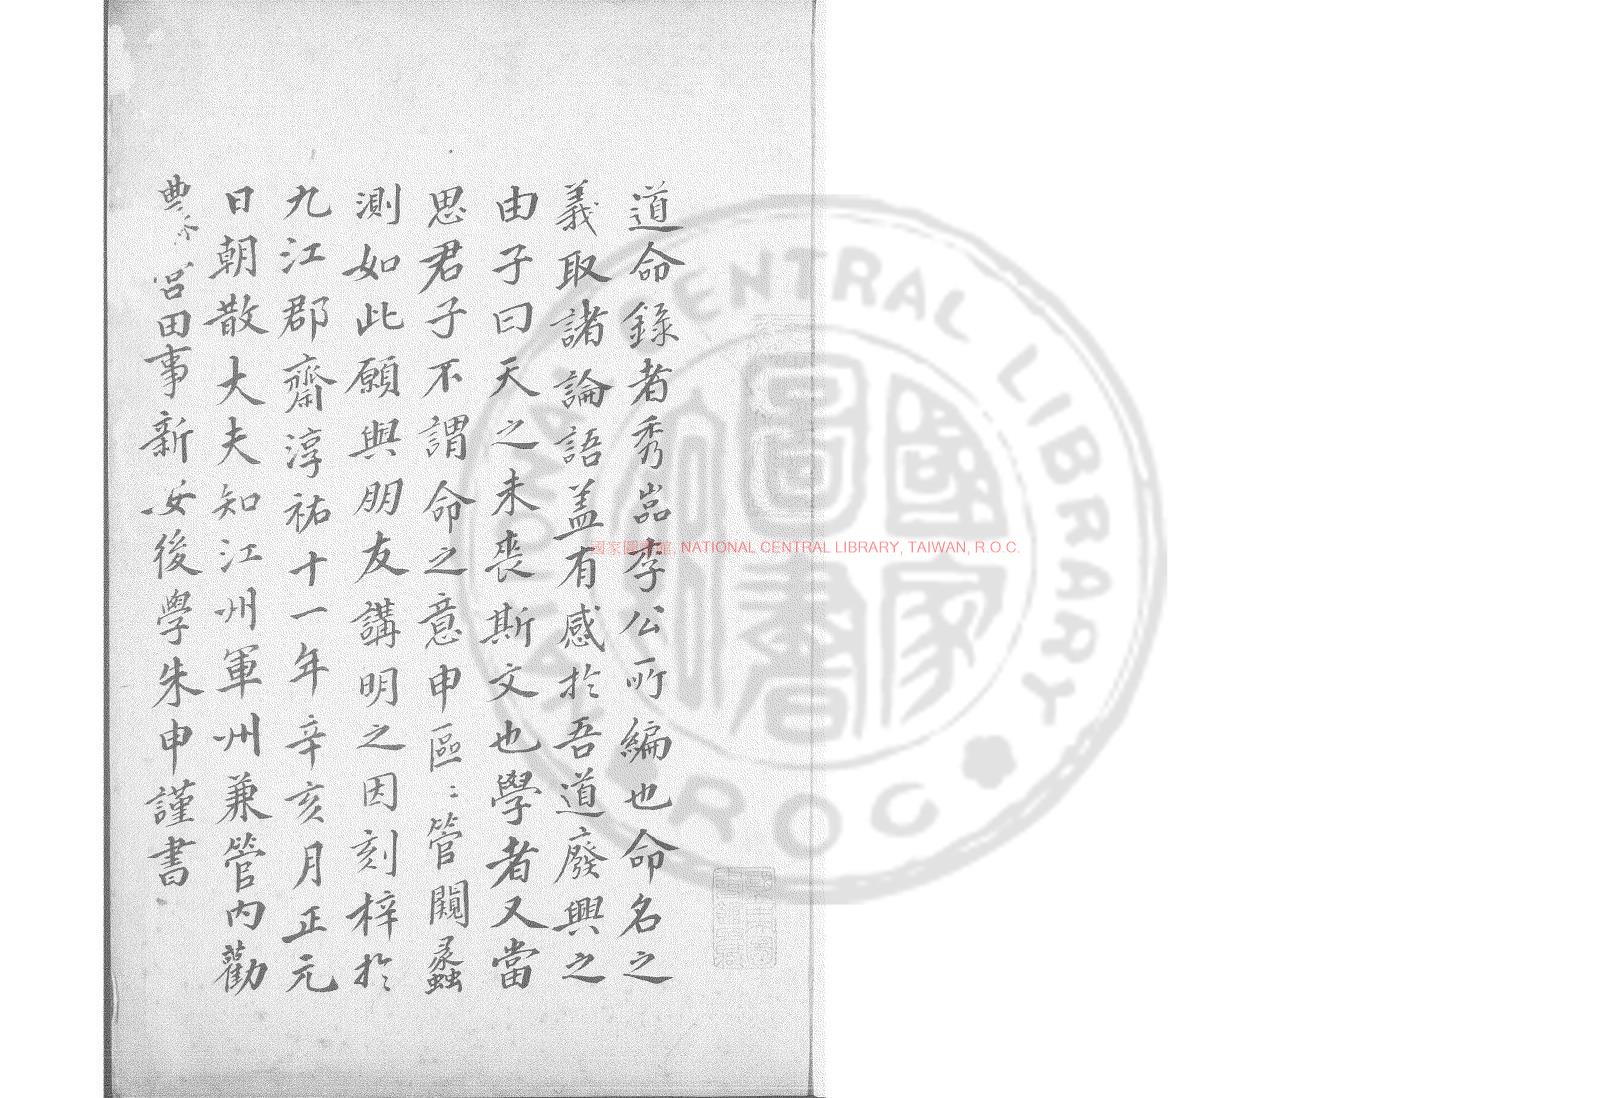 道命錄者秀嵓李公所編也命名之
義取諸論語盖有感於吾道廢興之
由子曰天之未喪斯文也學者又當
思君子不謂命之意申區〻管闚蠡
測如此願與朋友講明之因刻梓於
九江郡齋淳祐十一年辛亥月正元
日朝散大夫知江州軍州兼管內勸
農營田事新安後學朱申謹書
國家圖書館, NATIONAL CENTRAL LIBRARY, TAIWAN, R.O.C.